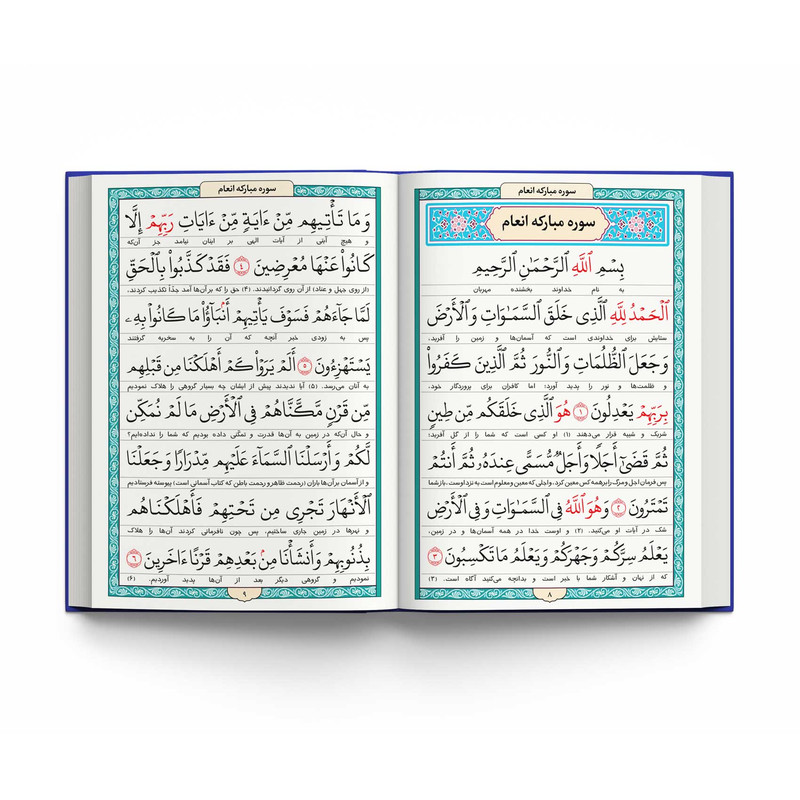 سوره مبارکه انعام
سوره مبارکه انعام
بِسْمِ ٱللَّهِ ٱلرَّحْمَٰنِ ٱلرَّحِيمِ
به نام خداوند بخشنده مهربان
ٱلْحَمْدُ لِلَّهِ ٱلَّذِي خَلَقَ ٱلسَّمَٰوَاتِ وَٱلْأَرْضَ
ستایش برای خداوندی است که آسمان‌ها و زمین را آفرید.
وَجَعَلَ ٱلظُّلُمَاتِ وَٱلنُّورَ ثُمَّ ٱلَّذِينَ كَفَرُوا۟
و ظلمت‌ها و نور را پدید آورد؛ اما کافران برای پروردگار خود،
بِرَبِّهِمْ يَعْدِلُونَ ١ هُوَ ٱلَّذِي خَلَقَكُم مِّن طِينٍ
شریک و شبیه قرار می‌دهند (۱) او کسی است که شما را از گل آفرید؛
ثُمَّ قَضَىٰٓ أَجَلًا وَأَجَلٌ مُّسَمًّى عِندَهُۥ ثُمَّ أَنتُمْ
پس فرمان اجل و مرگ را بر همه کس معین کرد. و اجلی که معین و معلوم است به نزد اوست. باز شما
تَمْتَرُونَ ٢ وَهُوَ ٱللَّهُ فِي ٱلسَّمَٰوَاتِ وَفِي ٱلْأَرْضِ
شک در آیات او می‌کنید. (۲) و اوست خدا در همه آسمان‌ها و در زمین،
يَعْلَمُ سِرَّكُمْ وَجَهْرَكُمْ وَيَعْلَمُ مَا تَكْسِبُونَ ٣
که از نهان و آشکار شما با خبر است و بدانچه می‌کنید آگاه است. (۳)
۸
سوره مبارکه انعام
وَمَا تَأْتِيهِم مِّنْ ءَايَةٍ مِّنْ ءَايَاتِ رَبِّهِمْ إِلَّا
و هیچ آیتی از آیات الهی بر اینان نیامد جز آن‌که
كَانُوا۟ عَنْهَا مُعْرِضِينَ ٤ فَقَدْ كَذَّبُوا۟ بِٱلْحَقِّ
(از روی جهل و عناد) از آن روی گردانیدند. (۴) حق را که بر آن‌ها آمد جدّاً تکذیب کردند.
لَمَّا جَآءَهُمْ فَسَوْفَ يَأْتِيهِمْ أَنۢبَٰٓؤُا۟ مَا كَانُوا۟ بِهِۦ
پس به زودی خبر آنچه که آن را به سخریه گرفتند
يَسْتَهْزِءُونَ ٥ أَلَمْ يَرَوْا۟ كَمْ أَهْلَكْنَا مِن قَبْلِهِم
به آنان می‌رسد. (۵) آیا ندیدند پیش از ایشان چه بسیار گروهی را هلاک نمودیم
مِّن قَرْنٍ مَّكَّنَّاهُمْ فِي ٱلْأَرْضِ مَا لَمْ نُمَكِّن
و حال آن‌که در زمین به آن‌ها قدرت و تمکّنی داده بودیم که شما را نداده‌ایم؟
لَّكُمْ وَأَرْسَلْنَا ٱلسَّمَآءَ عَلَيْهِم مِّدْرَارًا وَجَعَلْنَا
و از آسمان بر آن‌ها باران (رحمت ظاهر و رحمت باطن که کتاب آسمانی است) پیوسته فرستادیم
ٱلْأَنْهَارَ تَجْرِي مِن تَحْتِهِمْ فَأَهْلَكْنَاهُم
و نهرها در زمین جاری ساختیم. پس چون نافرمانی کردند آن‌ها را هلاک
بِذُنُوبِهِمْ وَأَنشَأْنَا مِنۢ بَعْدِهِمْ قَرْنًا ءَاخَرِينَ ٦
نمودیم و گروهی دیگر بعد از آن‌ها پدید آوردیم. (۶)
۹